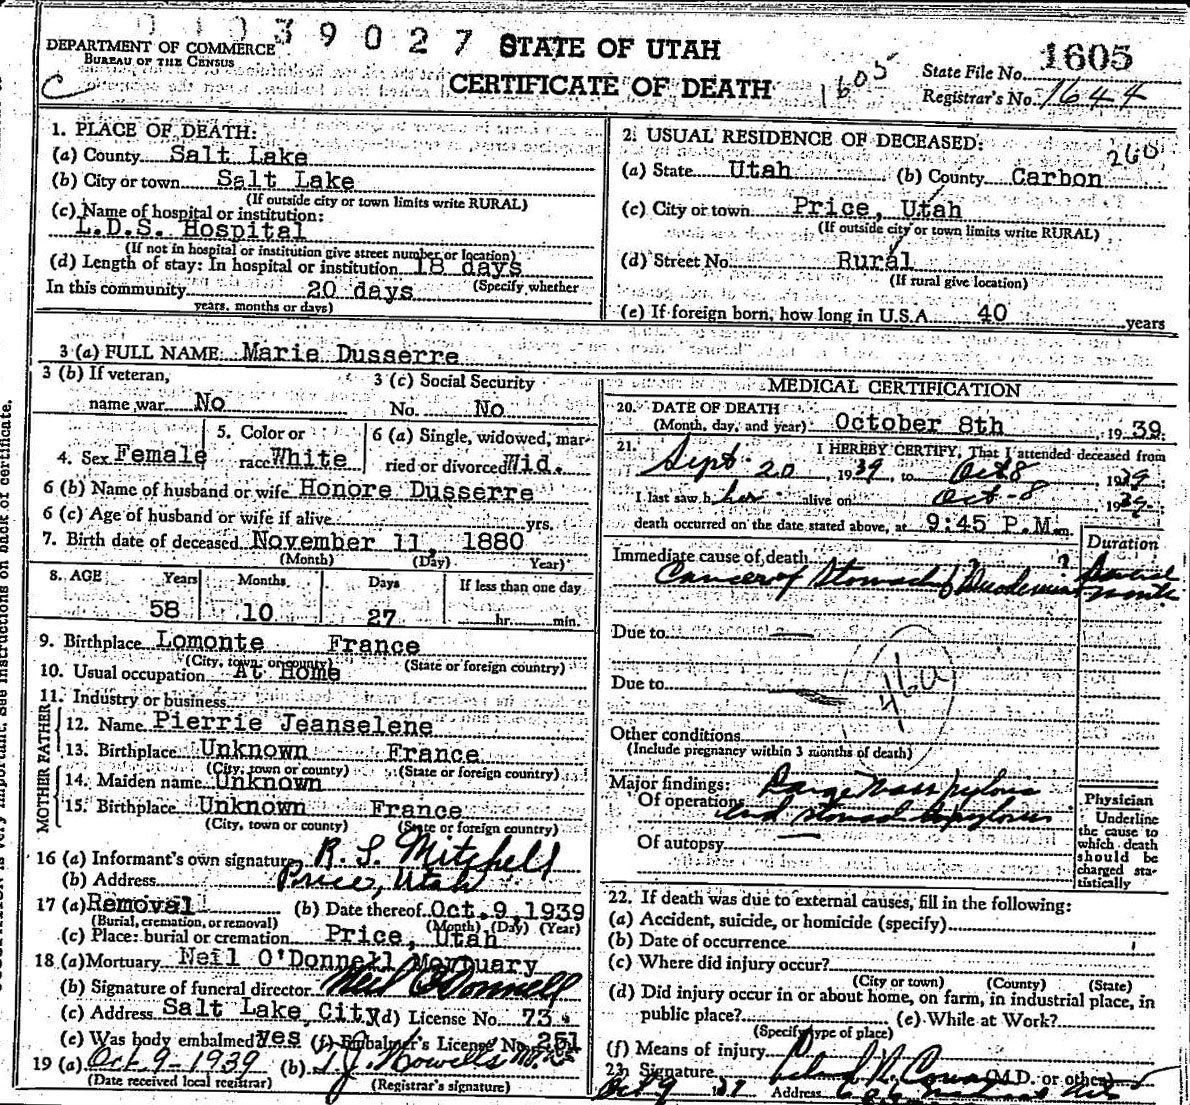 39027
DEPARTMENT OF COMMERCE
BUREAU OF THE CENSUS
C
STATE OF UTAH
CERTIFICATE OF DEATH
1605
State File No. 1605
Registrar's No. 1644
1. PLACE OF DEATH:
(a) County Salt Lake
(b) City or town Salt Lake
(If outside city or town limits write RURAL)
(c) Name of hospital or institution:
L.D.S. Hospital
(If not in hospital or institution give street number or location)
(d) Length of stay: In hospital or institution 18 days
In this community 20 days (Specify whether
years, months or days)
2. USUAL RESIDENCE OF DECEASED:
260
(a) State Utah (b) County Carbon
(c) City or town Price, Utah
(If outside city or town limits write RURAL)
(d) Street No. Rural
(If rural give location)
(e) If foreign born, how long in U.S.A. 40 years
3 (a) FULL NAME: Marie Dusserre
3 (b) If veteran,
name war No
3 (c) Social Security
No. No
4. Sex Female
5. Color or
race White
6 (a) Single, widowed, mar-
ried or divorced Wid.
6 (b) Name of husband or wife Honore Dusserre
6 (c) Age of husband or wife if alive yrs.
7. Birth date of deceased November 11, 1880
(Month) (Day) Year)
8. AGE Years Months Days If less than one day
58 10 27 hr. min.
9. Birthplace Lomonte France
(City, town, or county) (State or foreign country)
10. Usual occupation At Home
11. Industry or business
FATHER
12. Name Pierrie Jeanselene
13. Birthplace Unknown France
(City, town or county) (State or foreign country)
MOTHER
14. Maiden name Unknown
15. Birthplace Unknown France
(City, town or county) (State or foreign country)
16 (a) Informant's own signature R. S. Mitchell
(b) Address Price, Utah
17 (a) Removal (b) Date thereof Oct. 9, 1939
(Burial, cremation, or removal) (Month) (Day) (Year)
(c) Place: burial or cremation Price, Utah
18 (a) Mortuary Neil O'Donnell Mortuary
(b) Signature of funeral director Neil O'Donnell
(c) Address Salt Lake City (d) License No. 73
(e) Was body embalmed? yes (f) Embalmer's License No. 251
19 (a) Oct 9-1939 (b)
(Date received local registrar) (Registrar's signature)
MEDICAL CERTIFICATION
20. DATE OF DEATH
(Month, day, and year) October 8th 1939
21. I HEREBY CERTIFY, That I attended deceased from
Sept. 20, 1939, to Oct 8, 1939;
I last saw her alive on Oct-8, 1939;
death occurred on the date stated above, at 9:45 P.M. m.
Duration
Immediate cause of death
Cancer of Stomach & Duodenum ? Several
months
Due to
460
Due to
Other conditions
(Include pregnancy within 3 months of death)
Major findings: Large mass pylorus
Of operations and
Of autopsy
Physician
Underline
the cause to
which death
should be
charged sta-
tistically
22. If death was due to external causes, fill in the following:
(a) Accident, suicide, or homicide (specify)
(b) Date of occurrence
(c) Where did injury occur?
(City or town) (County) (State)
(d) Did injury occur in or about home, on farm, in industrial place, in
public place? (e) While at Work?
(Specify type of place)
(f) Means of injury
23. Signature (M.D. or other)
Oct 9 Address